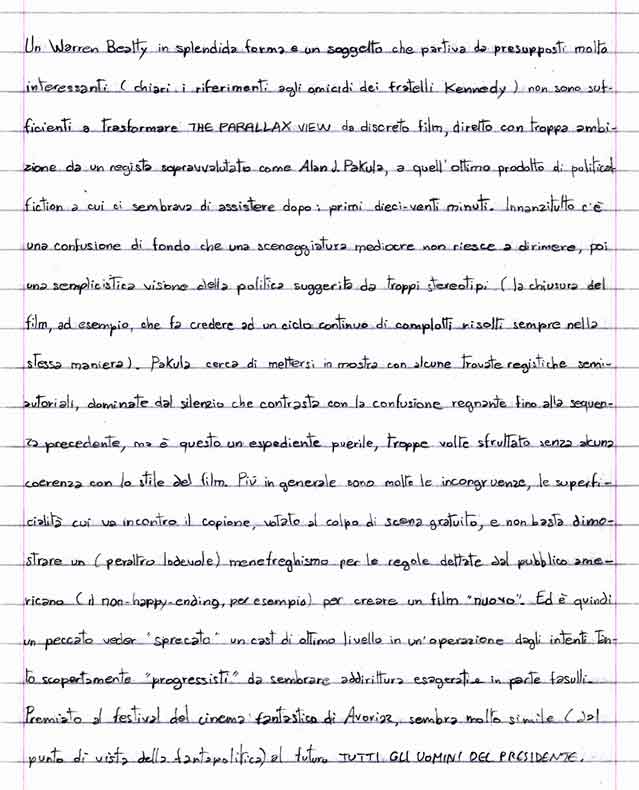 Un Warren Beatty in splendida forma e un soggetto che partiva da presupposti molto
interessanti (chiari i riferimenti agli omicidi dei fratelli Kennedy) non sono suf-
ficienti a trasformare THE PARALLAX VIEW da discreto film, diretto con troppa ambi-
zione da un regista sopravvalutato come Alan J. Pakula, a quell'ottimo prodotto di political
fiction a cui ci sembrava di assistere dopo i primi dieci-venti minuti. Innanzitutto c'è
una confusione di fondo che una sceneggiatura mediocre non riesce a dirimere, poi
una semplicistica visione della politica suggerita da troppi stereotipi (la chiusura del
film, ad esempio, che fa credere ad un ciclo continuo di complotti risolti sempre nella
stessa maniera). Pakula cerca di mettersi in mostra con alcune trovate registiche semi-
autoriali, dominate dal silenzio che contrasta con la confusione regnante fino alla sequen-
za precedente, ma è questo un espediente puerile, troppe volte sfruttato senza alcuna
coerenza con lo stile del film. Più in generale sono molte le incongruenze, le superfi-
cialità cui va incontro il copione, votato al colpo di scena gratuito, e non basta dimo-
strare un (peraltro lodevole) menefreghismo per le regole dettate dal pubblico ame-
ricano (il non-happy-ending, per esempio) per creare un film "nuovo". Ed è quindi
un peccato veder "sprecato" un cast di ottimo livello in un'operazione dagli intenti tan-
to scopertamente "progressisti" da sembrare addirittura esagerati e in parte fasulli.
Premiato al festival del cinema fantastico di Avoriaz, sembra molto simile (dal
punto di vista della fantapolitica) al futuro TUTTI GLI UOMINI DEL PRESIDENTE.